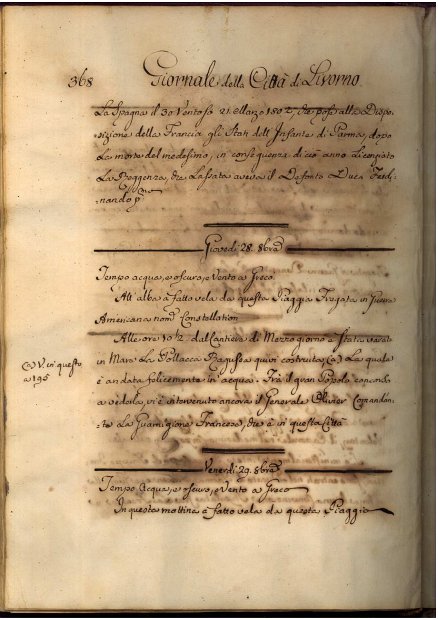 368
Giornale della Città di Livorno
La Spagna il 30 Ventoso 21 Marzo 1802, che pose alla Dispo-
sizione della Francia gli Stati dell Infante di Parma, dopo
La morte del medesimo, in conseguenza di ciò anno Licenziato
La Reggenza, che Lassata aveva il Defonto Duca Ferdi-
nando p
Giovedì 28. 8bre
Tempo acqua, e oscuro, e Vento a Greco
All' alba à fatto vela da questa Piaggia Fregata in Guerra
Americana nom.ª Constellation
Alle ore 10 1/2 dal Cantiere di Mezzogiorno è Stata varata
in Mare La Pollacca Ragusea quivi costruita (a) La quale
è andata felicemente in acqua. Trà il gran Popolo concorso
a vederla vi è intervenuto ancora il Generale Olivier Comandan-
te La Guarnigione Francese, che è in questa Città
(a) V. in questo
a 195
Venerdì 29. 8bre
Tempo Acqua, e oscuro, e Vento a Greco
In questa mattina à fatto vela da questa Piaggia